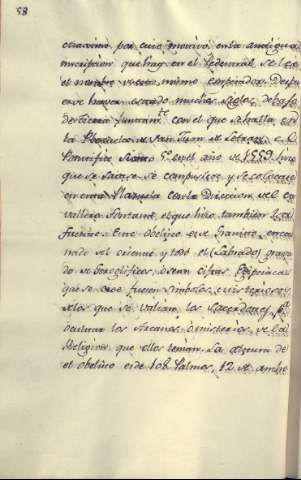 58
por cuio motivo en la antigua
inscripcion que hay en el Pedestal se lee
el nombre de este mismo emperador. Despu
es de haver estado muchos siglos debaxo
de tierra juntam.te con el que se halla en
la Plazuela de San Juan de Letran, el
Pontifice Sixto 5.º en el año de 1587 hizo
que se sacase se compusiese y se colocase
en esta Plazuela con la Direccion del Ca
vallero Fontana, el que hizo tambien las
fuentes. Este obelisco es de Granito encar
nado del oriente, y todo el Labrado graba
do de Geroglificos, o sean cifras Egipciacas
que se cree fuesen simbolos misteriosos
de los que se valian los Sacerdotes p.a
ocultar los Arcanos o misterios de la
Religion que ellos tenian. La altura de
el obelisco es de 108. Palmos, 12 de ancho